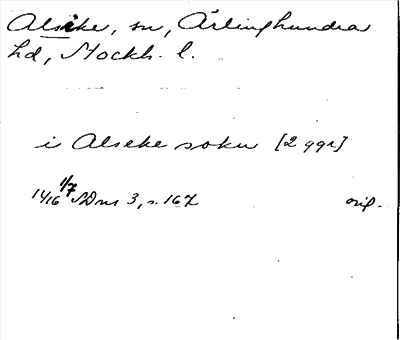 Alsike, sn, Ärlinghundra
hd, Stockh. l.
i Alseke sokn [2 ggr]
1416 1/7 SD ns 3, s. 167
orig.